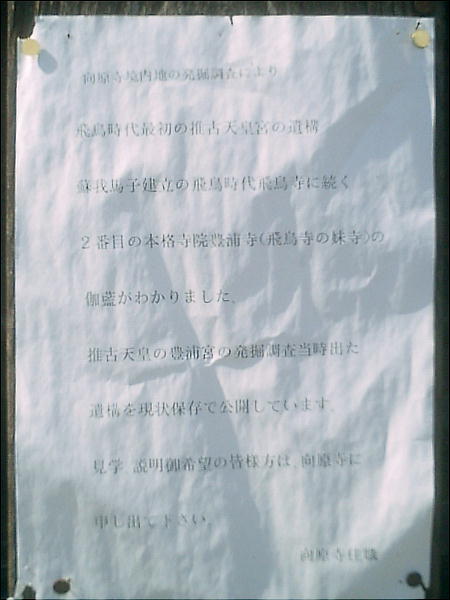 向原寺境内地の発掘調査により
飛鳥時代最初の推古天皇宮の遺構
蘇我馬子建立の飛鳥時代飛鳥寺に続く
2番目の本格寺院豊浦寺(飛鳥寺の妹寺)の
伽藍がわかりました。
推古天皇の豊浦宮の発掘調査当時出た
遺構を現状保存で公開しています。
見学 説明御希望の皆様方は、向原寺に
申し出て下さい。
向原寺住職